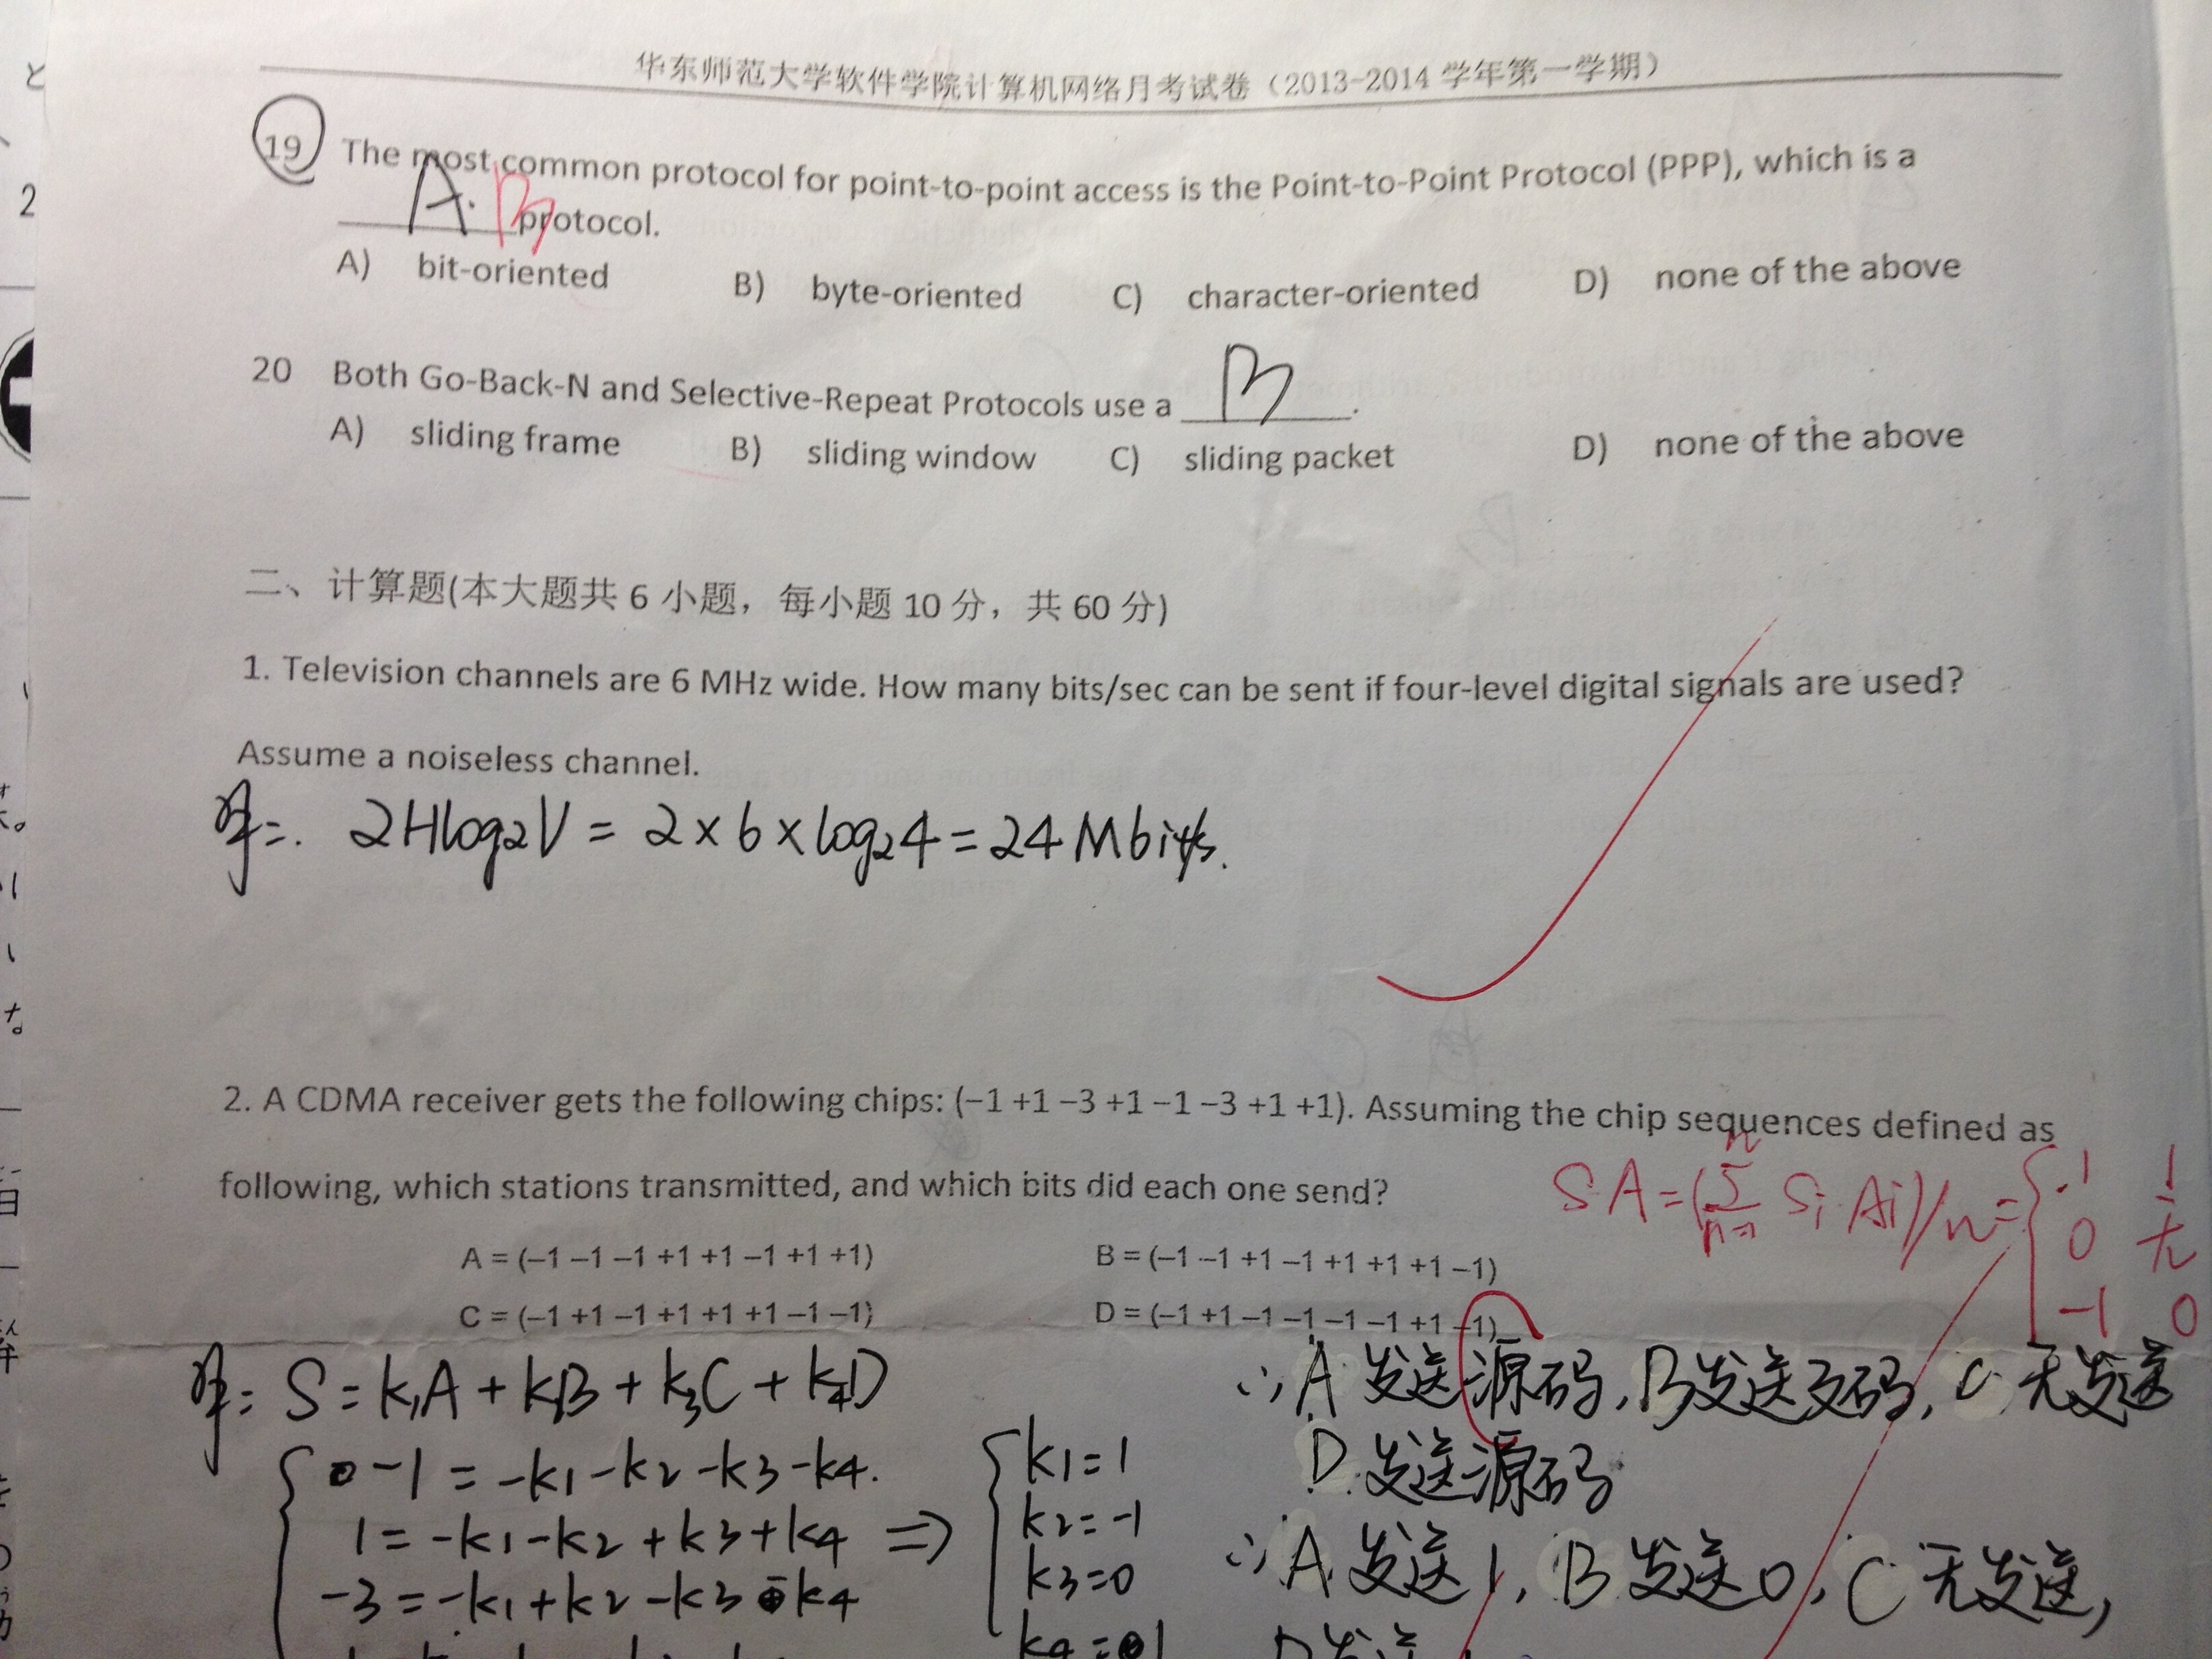 华东师范大学软件学院计算机网络月考试卷（2013-2014 学年第一学期）
19 The most common protocol for point-to-point access is the Point-to-Point Protocol (PPP), which is a
A. B protocol.
A) bit-oriented B) byte-oriented C) character-oriented D) none of the above
20 Both Go-Back-N and Selective-Repeat Protocols use a B.
A) sliding frame B) sliding window C) sliding packet D) none of the above
二、计算题(本大题共 6 小题，每小题 10 分，共 60 分)
1. Television channels are 6 MHz wide. How many bits/sec can be sent if four-level digital signals are used?
Assume a noiseless channel.
2Hlog₂V = 2×6×log₂4 = 24 Mbit/s.
2. A CDMA receiver gets the following chips: (–1 +1 –3 +1 –1 –3 +1 +1). Assuming the chip sequences defined as
following, which stations transmitted, and which bits did each one send?
S·A=(∑ Si·Ai)/n={ 1 1
0 无
-1 0
A = (–1 –1 –1 +1 +1 –1 +1 +1) B = (–1 –1 +1 –1 +1 +1 +1 –1)
C = (–1 +1 –1 +1 +1 +1 –1 –1) D = (–1 +1 –1 –1 –1 –1 +1 –1)
S = k₁A + k₂B + k₃C + k₄D
∴A发送源码, B发送反码, C无发送
D发送源码
-1 = -k1-k2-k3-k4.
1 = -k1-k2+k3+k4 ⇒
-3 = -k1+k2-k3-k4
k1=1
k2=-1
k3=0
k4=1
∴A发送1, B发送0, C无发送,
D发送